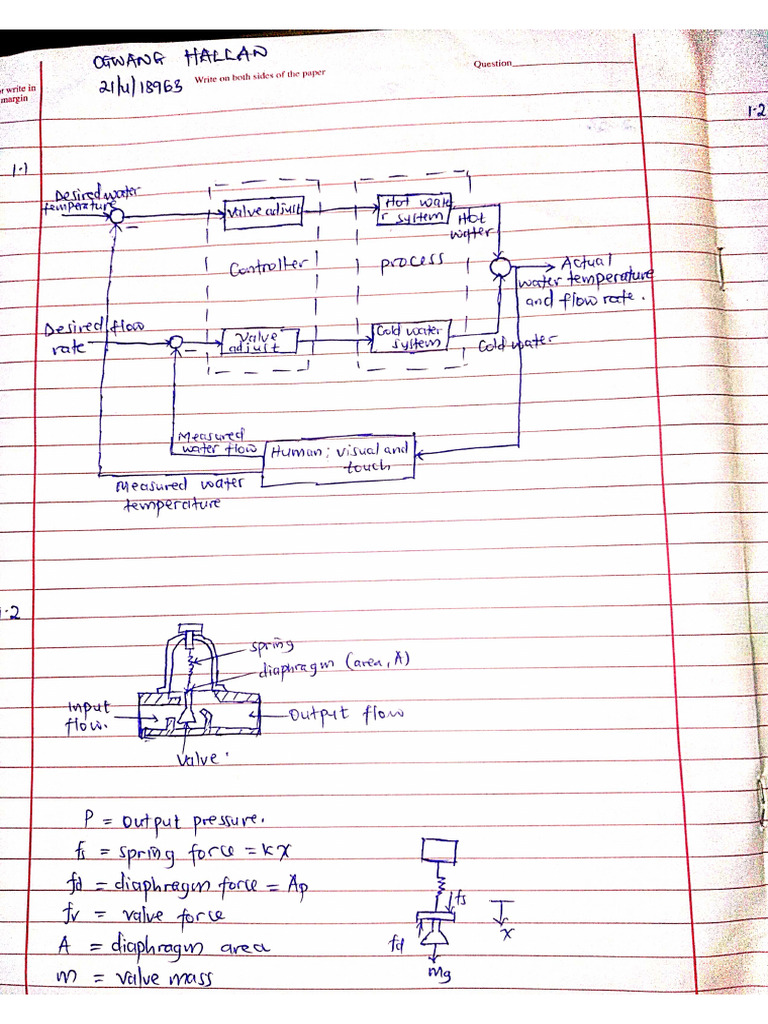 OGWANG HALLAN
Question
21/U/18963 Write on both sides of the paper
write in
margin
1.2
1.1
Desired water
temperature
−
Valve adjust
Hot wate
r system
Hot
water
Controller
process
Actual
water temperature
and flow rate.
Desired flow
rate
−
Valve
adjust
Cold water
system
Cold water
Measured
water flow
Human; visual and
touch
Measured water
temperature
1.2
spring
diaphragm (area, A)
Input
flow.
Output flow
Valve.
P = output pressure.
fs = spring force = Kx
fd = diaphragm force = Ap
fv = valve force
A = diaphragm area
m = valve mass
fs
x
fd
mg